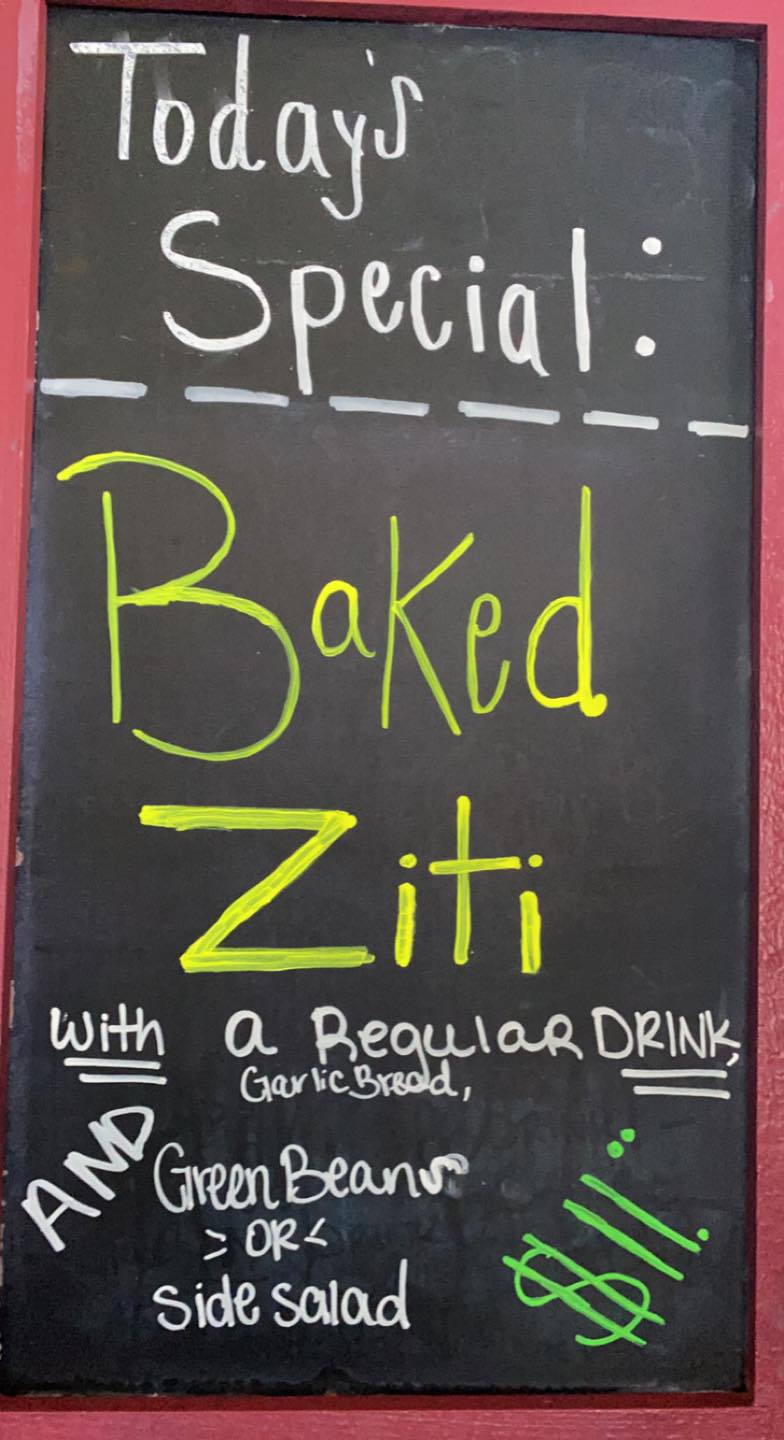 Today's
Special:
Baked
Ziti
With a Regular DRINK,
Garlic Bread,
AND Green Beans
> OR <
side salad
$11.